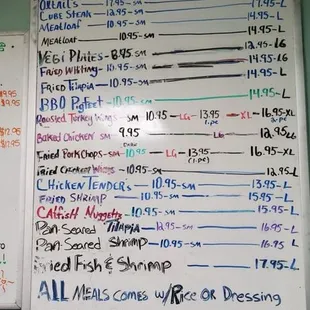 OXTAILS 17.95-SM 17.95-L
CUBE STEAK 12.95-SM 14.95-L
MEATLOAF
MEATLOAF 10.95-SM 14.95-L
VEGI PLATES-8.95 SM 12.95-LG
FRIED WHITING-10.95-SM 14.95-L
FRIED TILAPIA-10.95-SM 14.95-L
BBQ PGFEET-10.95-SM 14.95-L
ROASTED TURKEY WINGS-SM 10.95-LG-13.95-XL-16.95-XL
BAKED CHICKEN SM 9.95 LG 12.95LG
FRIED PORK CHOPS-SM-10.95-LG-13.95 16.95-XL
(1.PC)
FRIED CHICKEN WINGS-10.95-SM 12.95-L
CHICKEN TENDERS-10.95-SM 13.95-L
FRIED SHRIMP-10.95-SM 15.95-L
CATFISH NUGGETS-10.95-SM 15.95-L
PAN-SEARED TILAPIA-12.95-SM 16.95-L
PAN-SEARED SHRIMP-10.95-SM 16.95 L
FRIED FISH & SHRIMP 17.95-L
ALL MEALS COMES W/RICE OR DRESSING